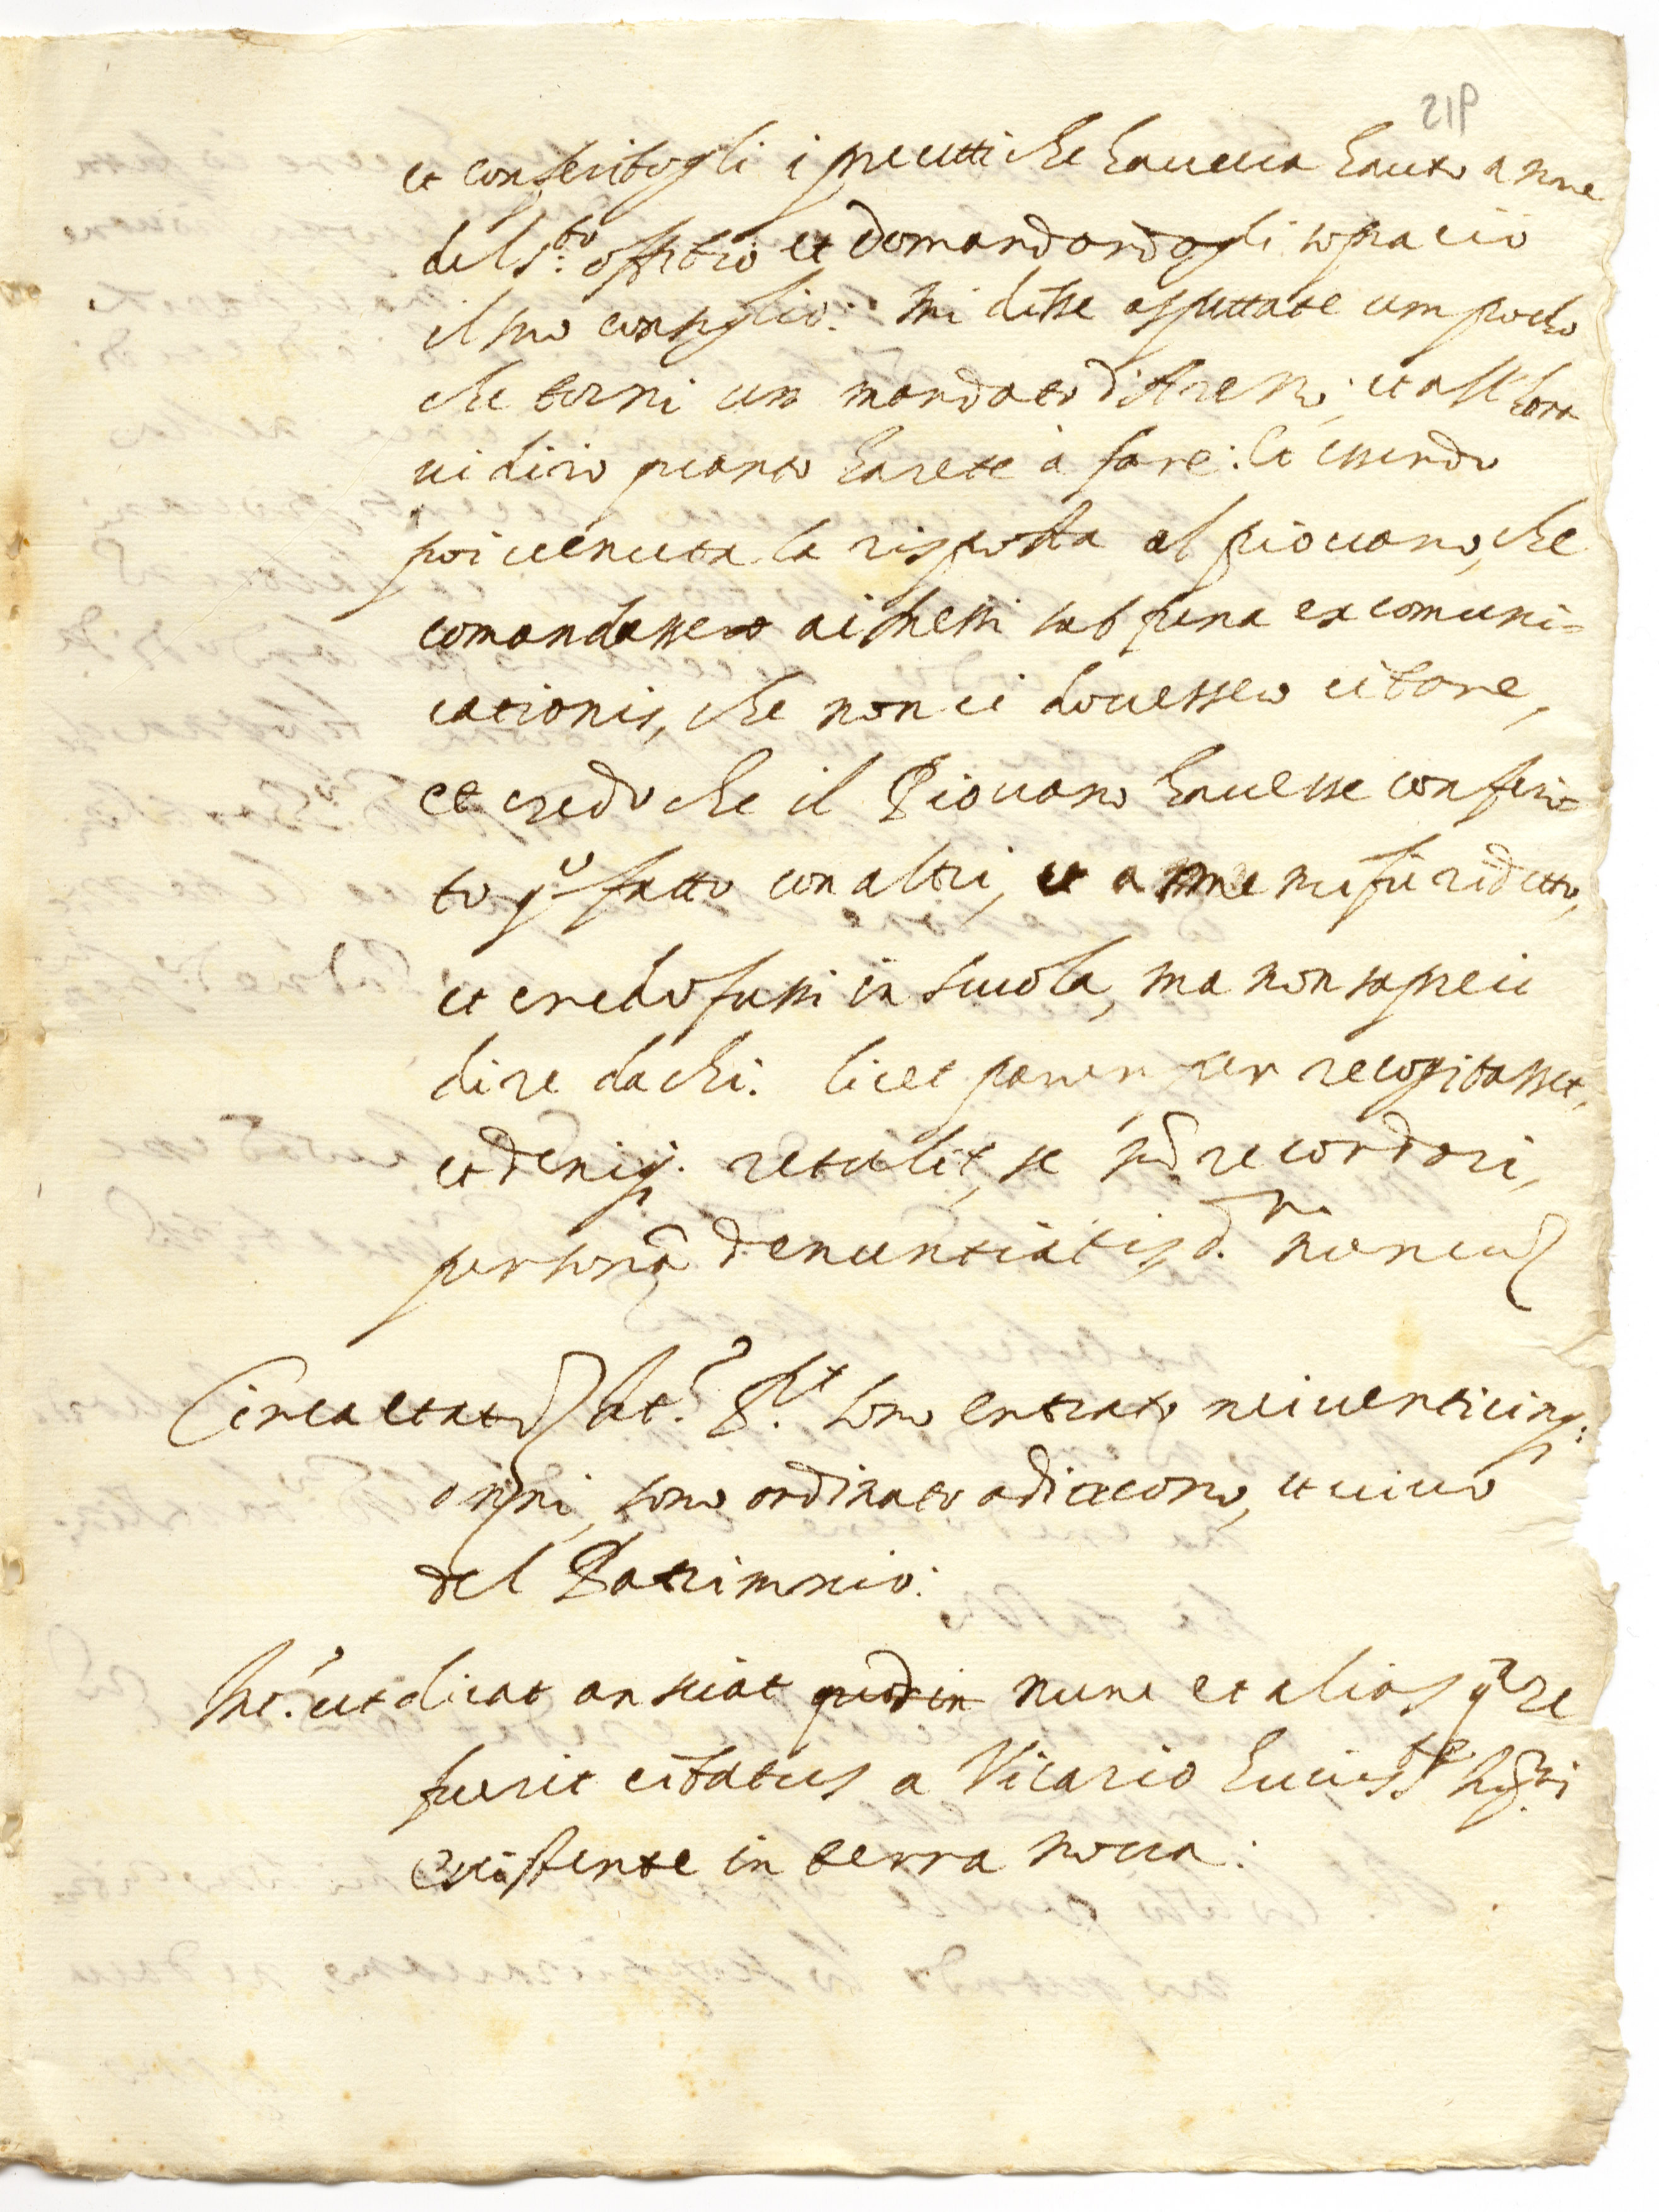 219
et conferitogli i precetti che haueua hauto a nome
del S.to offitio et domandandogli sopra ciò
il suo consiglio: mi disse aspettate um pocho
che torni un mandato di Arezzo, et all'hora
ui dirò quanto harete à fare: Et essendo
poi uenuta la risposta al piouano, che
comandassero ai messi sub pena excomuni=
cationis, che non ci douessero citare,
et credo che il Piouano hauesse conferi=
to q.o fatto con altri, et a me mi fu ridetto,
et credo fussi in scuola, ma non saprei
dire da chi. licet parumper recogitasset,
et deniq. retulit, se nō recordari,
personā denuntiatis d.
Circa etatē Int.s R.t sono entrato nei uenticinq:
anni, sono ordinato a diacono, et uiuo
del Patrimonio:
Int. ut dicat an sciat quod in nunc et alias q.re
fuerit citatus a Vicario huius S.ti
existente in terra noua: